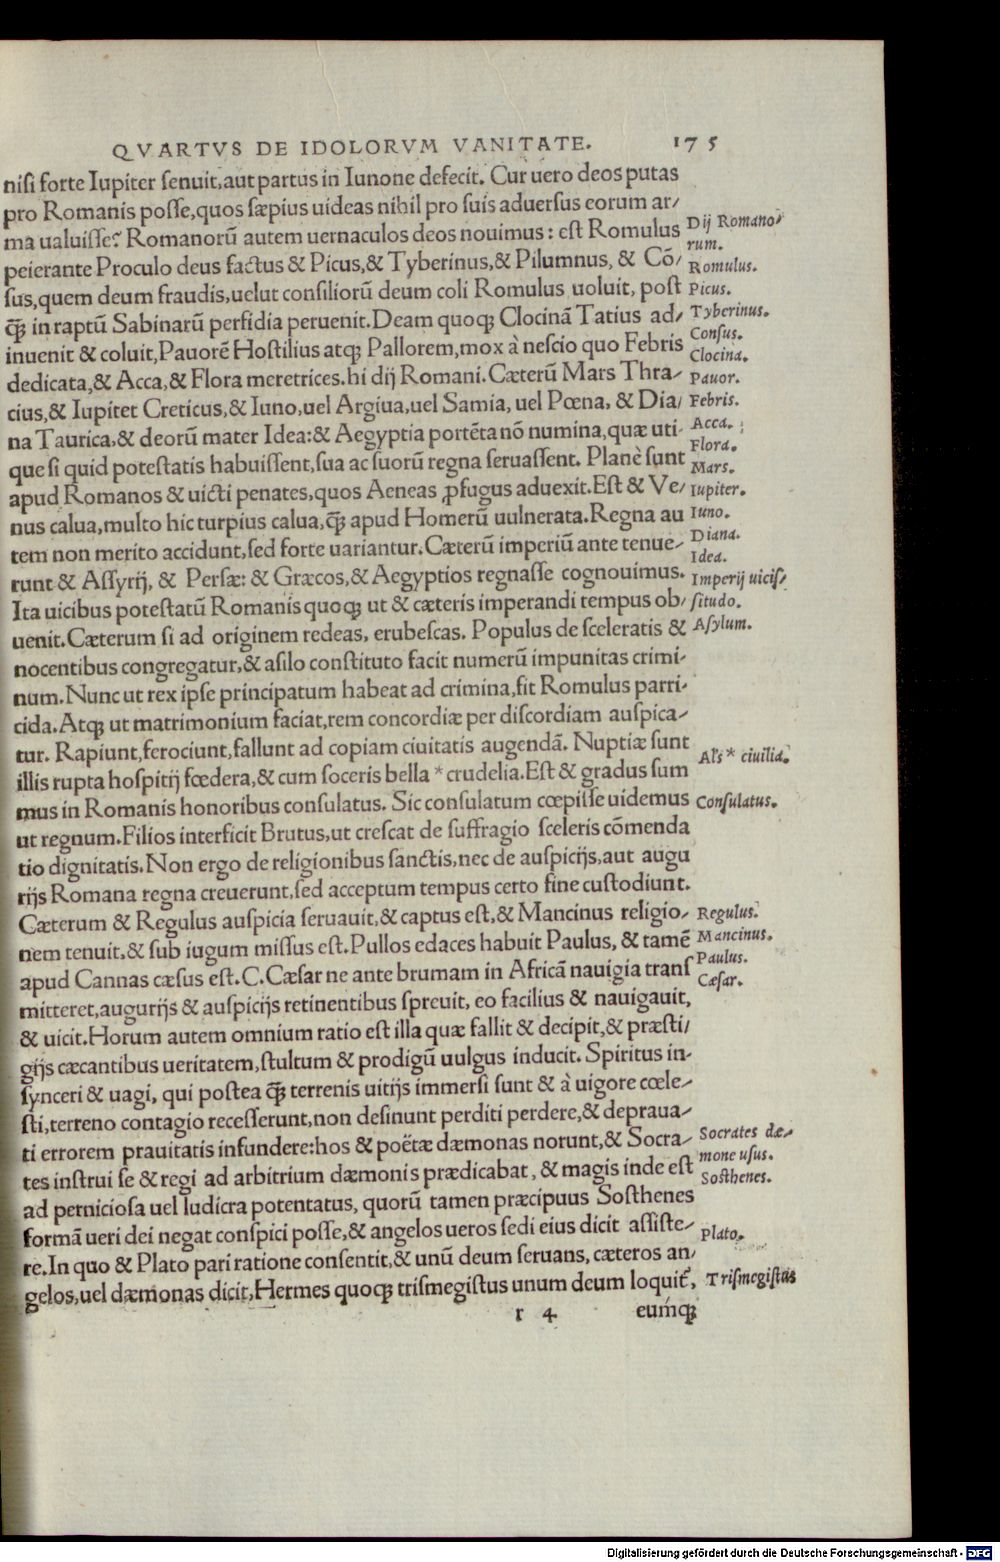 QVARTVS DE IDOLORVM VANITATE. 175
nisi forte Iupiter senuit,aut partus in Iunone defecit. Cur uero deos putas
pro Romanis posse,quos sæpius uideas nihil pro suis aduersus eorum ar/
ma ualuisse? Romanorũ autem uernaculos deos nouimus: est Romulus
peierante Proculo deus factus & Picus,& Tyberinus,& Pilumnus, & Cõ/
sus,quem deum fraudis,uelut consiliorũ deum coli Romulus uoluit, post
q̃ꝫ in raptũ Sabinarũ perfidia peruenit.Deam quoqꝫ Clocinã Tatius ad/
inuenit & coluit,Pauorẽ Hostilius atqꝫ Pallorem,mox à nescio quo Febris
dedicata,& Acca,& Flora meretrices.hi dij Romani.Cæterũ Mars Thra/
cius,& Iupitet Creticus,& Iuno,uel Argiua,uel Samia, uel Pœna, & Dia/
na Taurica,& deorũ mater Idea:& Aegyptia portẽta nõ numina,quæ uti-
que si quid potestatis habuissent,sua ac suorũ regna seruassent. Planè sunt
apud Romanos & uicti penates,quos Aeneas ꝓfugus aduexit.Est & Ve/
nus calua,multo hic turpius calua,q̃ꝫ apud Homerũ uulnerata.Regna au
tem non merito accidunt,sed forte uariantur.Cæterũ imperiũ ante tenue/
runt & Assyrij, & Persæ: & Græcos,& Aegyptios regnasse cognouimus.
Ita uicibus potestatũ Romanis quoqꝫ ut & cæteris imperandi tempus ob/
uenit.Cæterum si ad originem redeas, erubescas. Populus de sceleratis &
nocentibus congregatur,& asilo constituto facit numerũ impunitas crimi-
num.Nunc ut rex ipse principatum habeat ad crimina,fit Romulus parri-
cida.Atqꝫ ut matrimonium faciat,rem concordiæ per discordiam auspica/
tur. Rapiunt,ferociunt,fallunt ad copiam ciuitatis augendã. Nuptiæ sunt
illis rupta hospitij fœdera,& cum soceris bella * crudelia.Est & gradus sum
mus in Romanis honoribus consulatus. Sic consulatum cœpisse uidemus
ut regnum.Filios interficit Brutus,ut crescat de suffragio sceleris cõmenda
tio dignitatis. Non ergo de religionibus sanctis,nec de auspicijs,aut augu
rijs Romana regna creuerunt,sed acceptum tempus certo fine custodiunt.
Cæterum & Regulus auspicia seruauit,& captus est,& Mancinus religio/
nem tenuit,& sub iugum missus est.Pullos edaces habuit Paulus, & tamẽ
apud Cannas cæsus est.C.Cæsar ne ante brumam in Africã nauigia trans
mitteret,augurijs & auspicijs retinentibus spreuit, eo facilius & nauigauit,
& uicit.Horum autem omnium ratio est illa quæ fallit & decipit,& præsti/
gijs cæcantibus ueritatem,stultum & prodigũ uulgus inducit. Spiritus in-
synceri & uagi, qui postea q̃ꝫ terrenis uitijs immersi sunt & à uigore cœle/
sti,terreno contagio recesserunt,non desinunt perditi perdere,& depraua/
ti errorem prauitatis infundere:hos & poëtæ dæmonas norunt,& Socra/
tes instrui se & regi ad arbitrium dæmonis prædicabat, & magis inde est
ad perniciosa uel ludicra potentatus, quorũ tamen præcipuus Sosthenes
formã ueri dei negat conspici posse,& angelos ueros sedi eius dicit assiste/
re.In quo & Plato pari ratione consentit,& unũ deum seruans, cæteros an/
gelos,uel dæmonas dicit,Hermes quoqꝫ trismegistus unum deum loquit̃,
r 4 eumqꝫ
Dij Romano/
rum.
Romulus.
Picus.
Tyberinus.
Consus.
Clocina.
Pauor.
Febris.
Acca.
Flora.
Mars.
Iupiter.
Iuno.
Diana.
Idea.
Imperij uicis/
situdo.
Asylum.
Als * ciuilia.
Consulatus.
Regulus.
Mancinus.
Paulus.
Cæsar.
Socrates dæ/
mone usus.
Sosthenes.
Plato.
Trismegistus
Digitalisierung gefördert durch die Deutsche Forschungsgemeinschaft - DFG